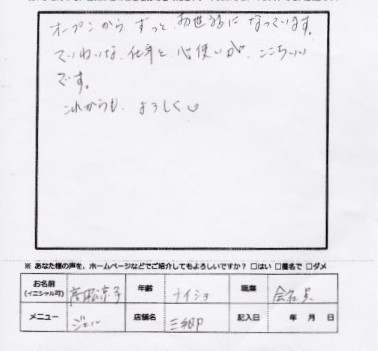 オープンから、ずっとお世話になっています。
ていねいな、仕事と心使いが、ここちいい
です。
これからも、よろしく
※ あなた様の声を、ホームページなどでご紹介してもよろしいですか? □はい □匿名で □ダメ
お名前 (イニシャル可) 高松涼子 年齢 ナイショ 職業 会社員
メニュー ジェル 店舗名 記入日 年 月 日